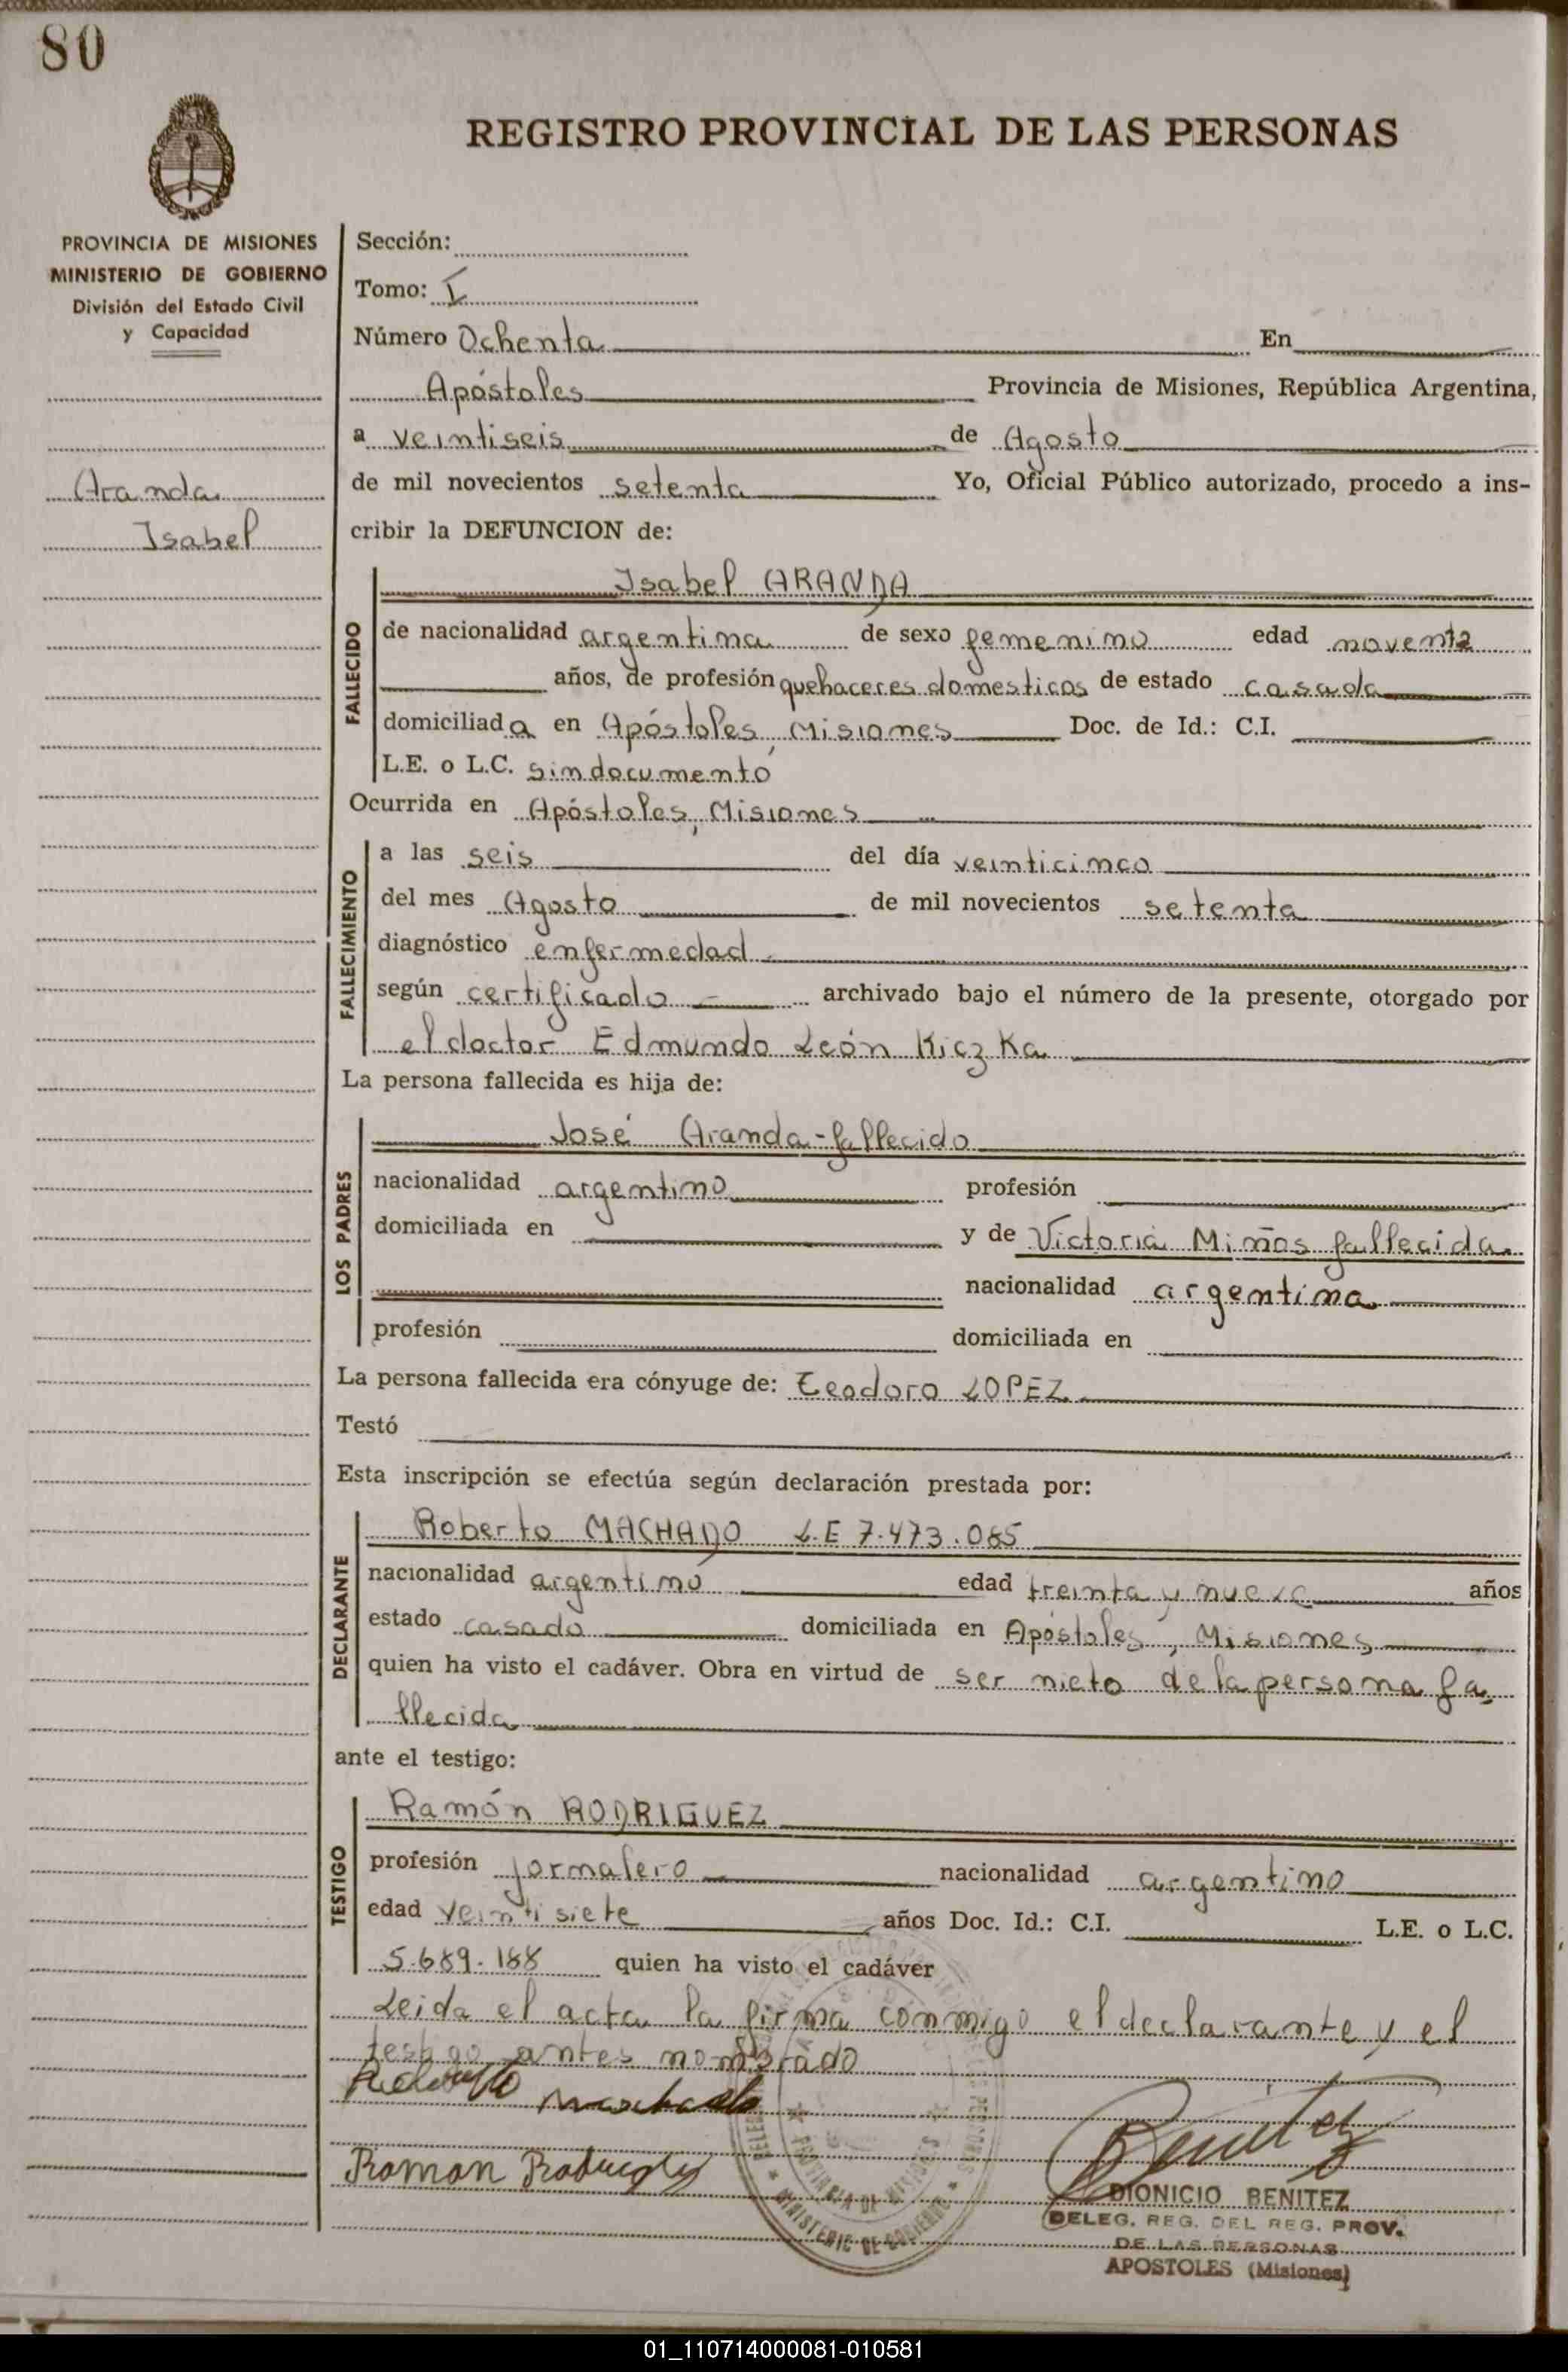 80
REGISTRO PROVINCIAL DE LAS PERSONAS
PROVINCIA DE MISIONES
MINISTERIO DE GOBIERNO
División del Estado Civil
y Capacidad
Aranda
Isabel
Sección:
Tomo: I
Número Ochenta En
Apóstoles Provincia de Misiones, República Argentina,
a veintiseis de Agosto
de mil novecientos setenta Yo, Oficial Público autorizado, procedo a ins-
cribir la DEFUNCION de:
FALLECIDO
Isabel ARANDA
de nacionalidad argentina de sexo femenino edad noventa
años, de profesión quehaceres domesticos de estado casada
domiciliada en Apóstoles, Misiones Doc. de Id.: C.I.
L.E. o L.C. sin documento
Ocurrida en Apóstoles, Misiones
FALLECIMIENTO
a las seis del día veinticinco
del mes Agosto de mil novecientos setenta
diagnóstico enfermedad
según certificado — archivado bajo el número de la presente, otorgado por
el doctor Edmundo León Kiczka
La persona fallecida es hija de:
LOS PADRES
José Aranda - fallecido
nacionalidad argentino profesión
domiciliada en y de Victoria Miños fallecida
nacionalidad argentina
profesión domiciliada en
La persona fallecida era cónyuge de: Teodoro LOPEZ
Testó
Esta inscripción se efectúa según declaración prestada por:
DECLARANTE
Roberto MACHADO L.E 7.473.085
nacionalidad argentino edad treinta y nueve años
estado casado domiciliada en Apóstoles, Misiones
quien ha visto el cadáver. Obra en virtud de ser nieto de la persona fa
llecida
ante el testigo:
TESTIGO
Ramón RODRIGUEZ
profesión jornalero nacionalidad argentino
edad veintisiete años Doc. Id.: C.I. L.E. o L.C.
5.689.188 quien ha visto el cadáver
Leida el acta la firma conmigo el declarante y el
testigo antes nombrado
Machado
Roman Rodriguez
Benitez
PROVINCIA DE MISIONES
MINISTERIO DE GOBIERNO
DIONICIO BENITEZ
DELEG. REG. DEL REG. PROV.
DE LAS PERSONAS
APOSTOLES (Misiones)
01_110714000081-010581